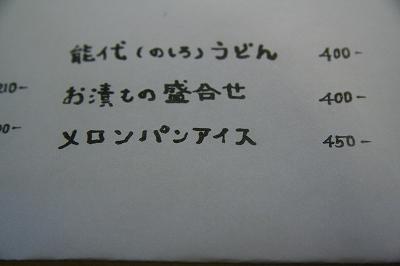 能代(のしろ)うどん 400-
お漬もの盛合せ 400-
メロンパンアイス 450-